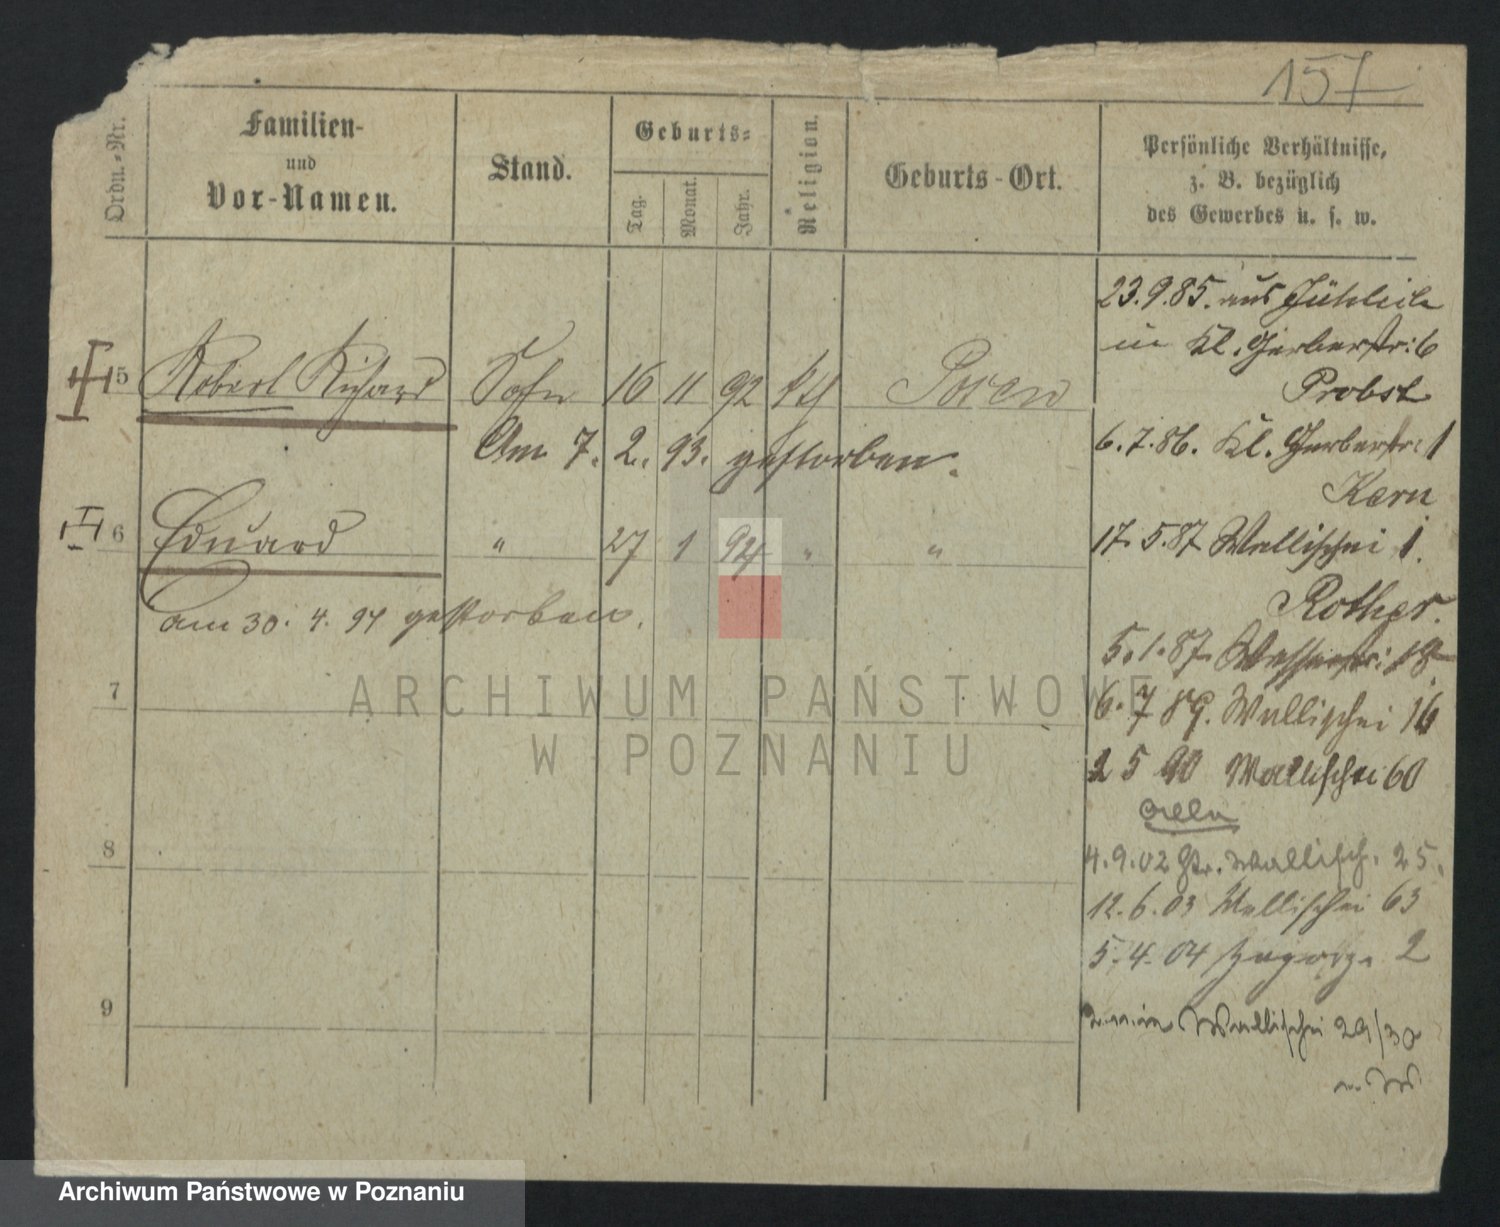 157
Ordn.-Nr.
Familien-
und
Vor-Namen.
Stand.
Geburts-
Tag.
Monat.
Jahr.
Religion.
Geburts-Ort.
Persönliche Verhältnisse,
z. B. bezüglich
des Gewerbes u. s. w.
23.9.85. aus
in Kl. Gerberstr: 6
Probst
5 Robert Richard Sohn 16 11 92 kth Posen
Am 7. 2. 93. gestorben.
6.7.86. Kl. Gerberstr: 1
Kern
6 Eduard " 27 1 94 " "
17.5.87 Wallischei 1.
am 30. 4. 94 gestorben.
Rother.
5.1.87. Wasserstr: 18
7
6.7 89. Wallischei 16
2 5 90 Wallischei 60
8
4.9.02 Gr. Wallisch. 25.
12.6.03 Wallischei 63
5.4.04 Zagorze 2
9
Wallischei 29/30
ARCHIWUM PAŃSTWOWE
W POZNANIU
Archiwum Państwowe w Poznaniu